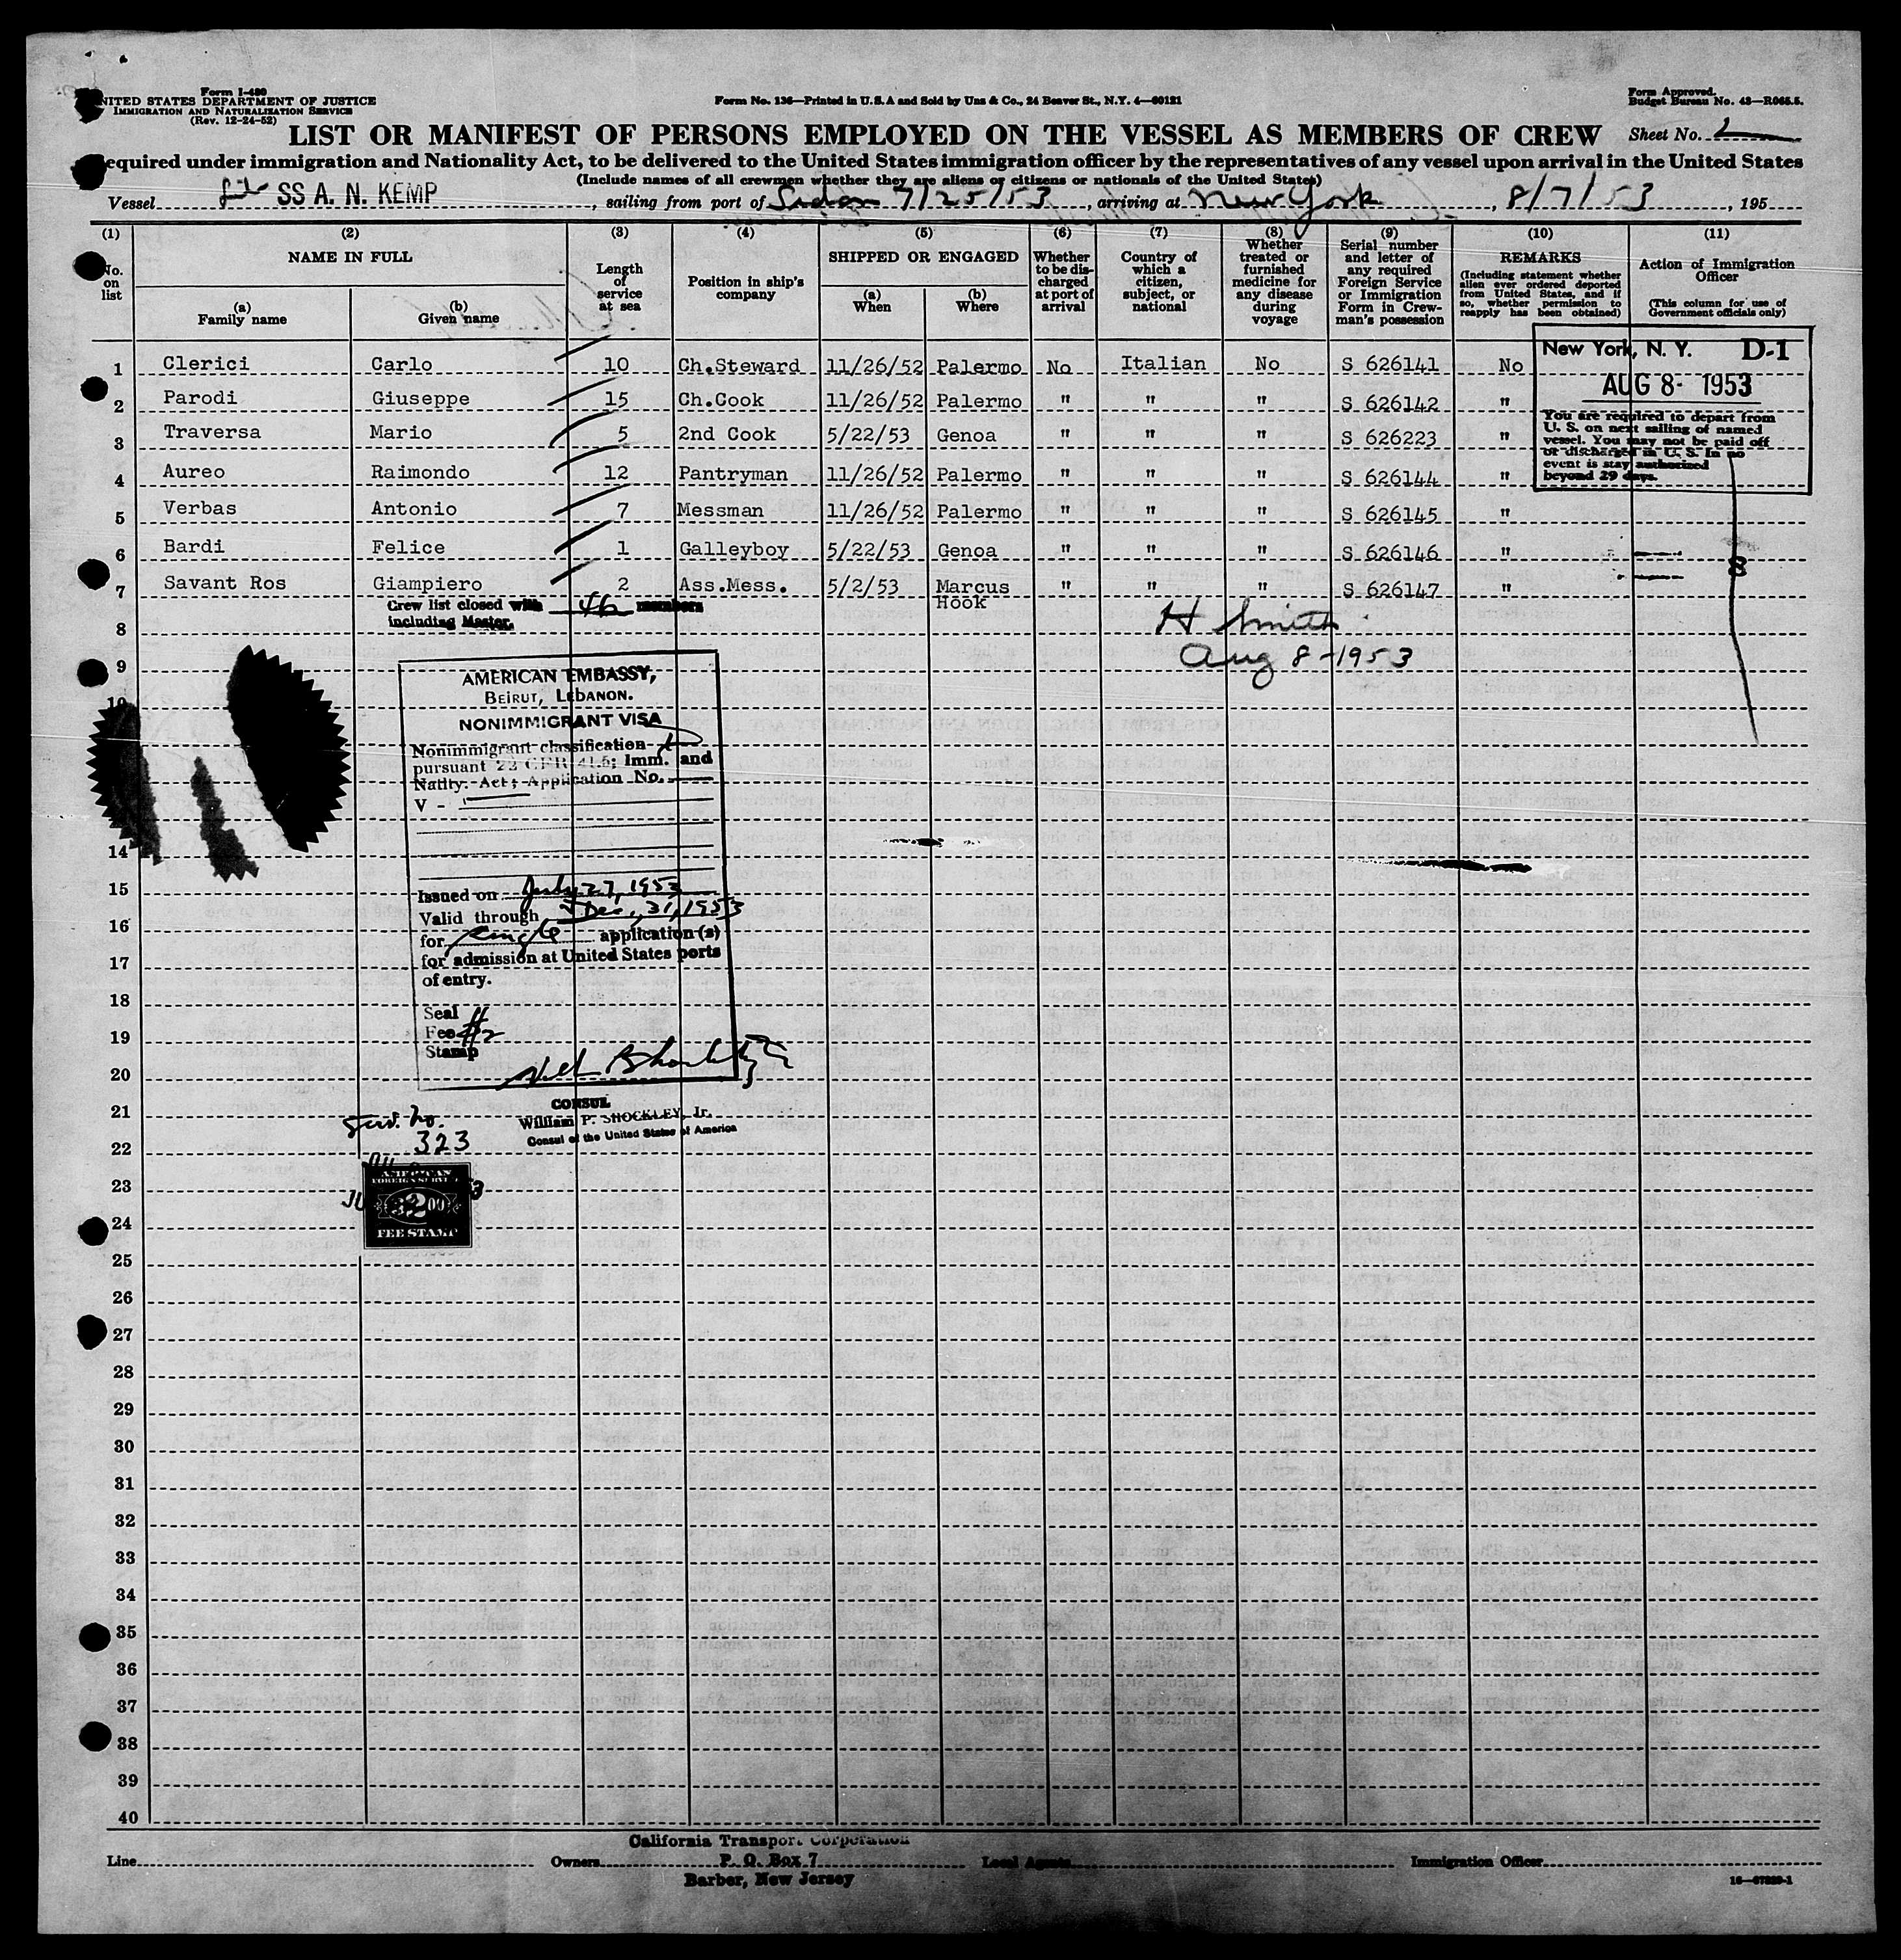 Form I-480
UNITED STATES DEPARTMENT OF JUSTICE
IMMIGRATION AND NATURALIZATION SERVICE
(Rev. 12-24-52)
Form No. 136—Printed in U.S.A and Sold by Unz & Co., 24 Beaver St., N.Y. 4—60121
Form Approved.
Budget Bureau No. 43—R065.5.
LIST OR MANIFEST OF PERSONS EMPLOYED ON THE VESSEL AS MEMBERS OF CREW
Sheet No. 2
equired under immigration and Nationality Act, to be delivered to the United States immigration officer by the representatives of any vessel upon arrival in the United States
(Include names of all crewmen whether they are aliens or citizens or nationals of the United States)
Vessel SS A. N. KEMP, sailing from port of Sidon 7/25/53, arriving at New York, 8/7/53, 195
(1) (2) (3) (4) (5) (6) (7) (8) (9) (10) (11)
No. on list
NAME IN FULL
(a) Family name
(b) Given name
Length of service at sea
Position in ship's company
SHIPPED OR ENGAGED
(a) When
(b) Where
Whether to be discharged at port of arrival
Country of which a citizen, subject, or national
Whether treated or furnished medicine for any disease during voyage
Serial number and letter of any required Foreign Service or Immigration Form in Crewman's possession
REMARKS
(Including statement whether alien ever ordered deported from United States, and if so, whether permission to reapply has been obtained)
Action of Immigration Officer
(This column for use of Government officials only)
1 Clerici Carlo 10 Ch.Steward 11/26/52 Palermo No Italian No S 626141 No
2 Parodi Giuseppe 15 Ch.Cook 11/26/52 Palermo " " " S 626142 "
3 Traversa Mario 5 2nd Cook 5/22/53 Genoa " " " S 626223 "
4 Aureo Raimondo 12 Pantryman 11/26/52 Palermo " " " S 626144 "
5 Verbas Antonio 7 Messman 11/26/52 Palermo " " " S 626145 "
6 Bardi Felice 1 Galleyboy 5/22/53 Genoa " " " S 626146 "
7 Savant Ros Giampiero 2 Ass.Mess. 5/2/53 Marcus Hook " " " S 626147 "
New York, N. Y. D-1
AUG 8- 1953
You are required to depart from
U. S. on next sailing of named
vessel. You may not be paid off
or discharged in U. S. In no
event is stay authorized
beyond 29 days.
8
Crew list closed with 46 members
including Master.
H Smith
Aug 8-1953
8
9
10
AMERICAN EMBASSY,
BEIRUT, LEBANON.
NONIMMIGRANT VISA
Nonimmigrant classification D
pursuant 22 CFR 41.5; Imm. and
Natlty. Act; Application No.
V -
14
15
16
17
18
19
20
Issued on July 27, 1953
Valid through Dec., 31, 1953
for single application(s)
for admission at United States ports
of entry.
Seal
Fee #2
Stamp
CONSUL
William P. SHOCKLEY, Jr.
Consul of the United States of America
Serv. No.
323
AMERICAN
FOREIGN SERVICE
$2.00
FEE STAMP
21
22
23
24
25
26
27
28
29
30
31
32
33
34
35
36
37
38
39
40
California Transport Corporation
Line Owners P. O. Box 7 Local Agents Immigration Officer
Barber, New Jersey